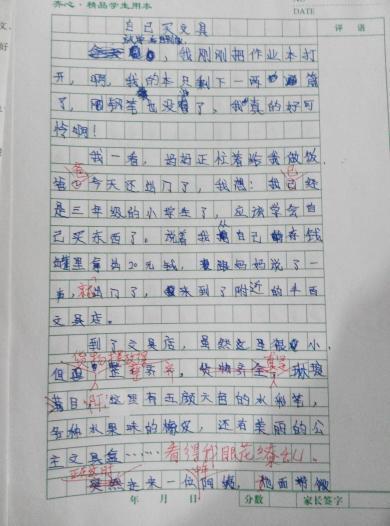 齐心·精品学生用本
DATE
评语
自己买文具
，我刚刚把作业本打
开，啊，我的本只剩下一两篇
了，钢笔也没了，我真的好可
怜啊！
我一看，妈妈正忙着给我做饭，
爸爸今天还出门了，我想：我已经
是三年级的小学生了，应该学会自
己买东西了。说着我从自己存钱
罐里拿出20元钱，跟妈妈说了一
声，就出门了，来到了附近的
文具店。
到了文具店，虽然这里很小，
但是整整齐齐，货物齐全，真是琳琅
满目，这里有五颜六色的水彩笔，
各种水果味的橡皮，还有美丽的公
主文具盒……看得我眼花缭乱。
走来一位阿姨，面带微
年 月 日
分数
家长签字